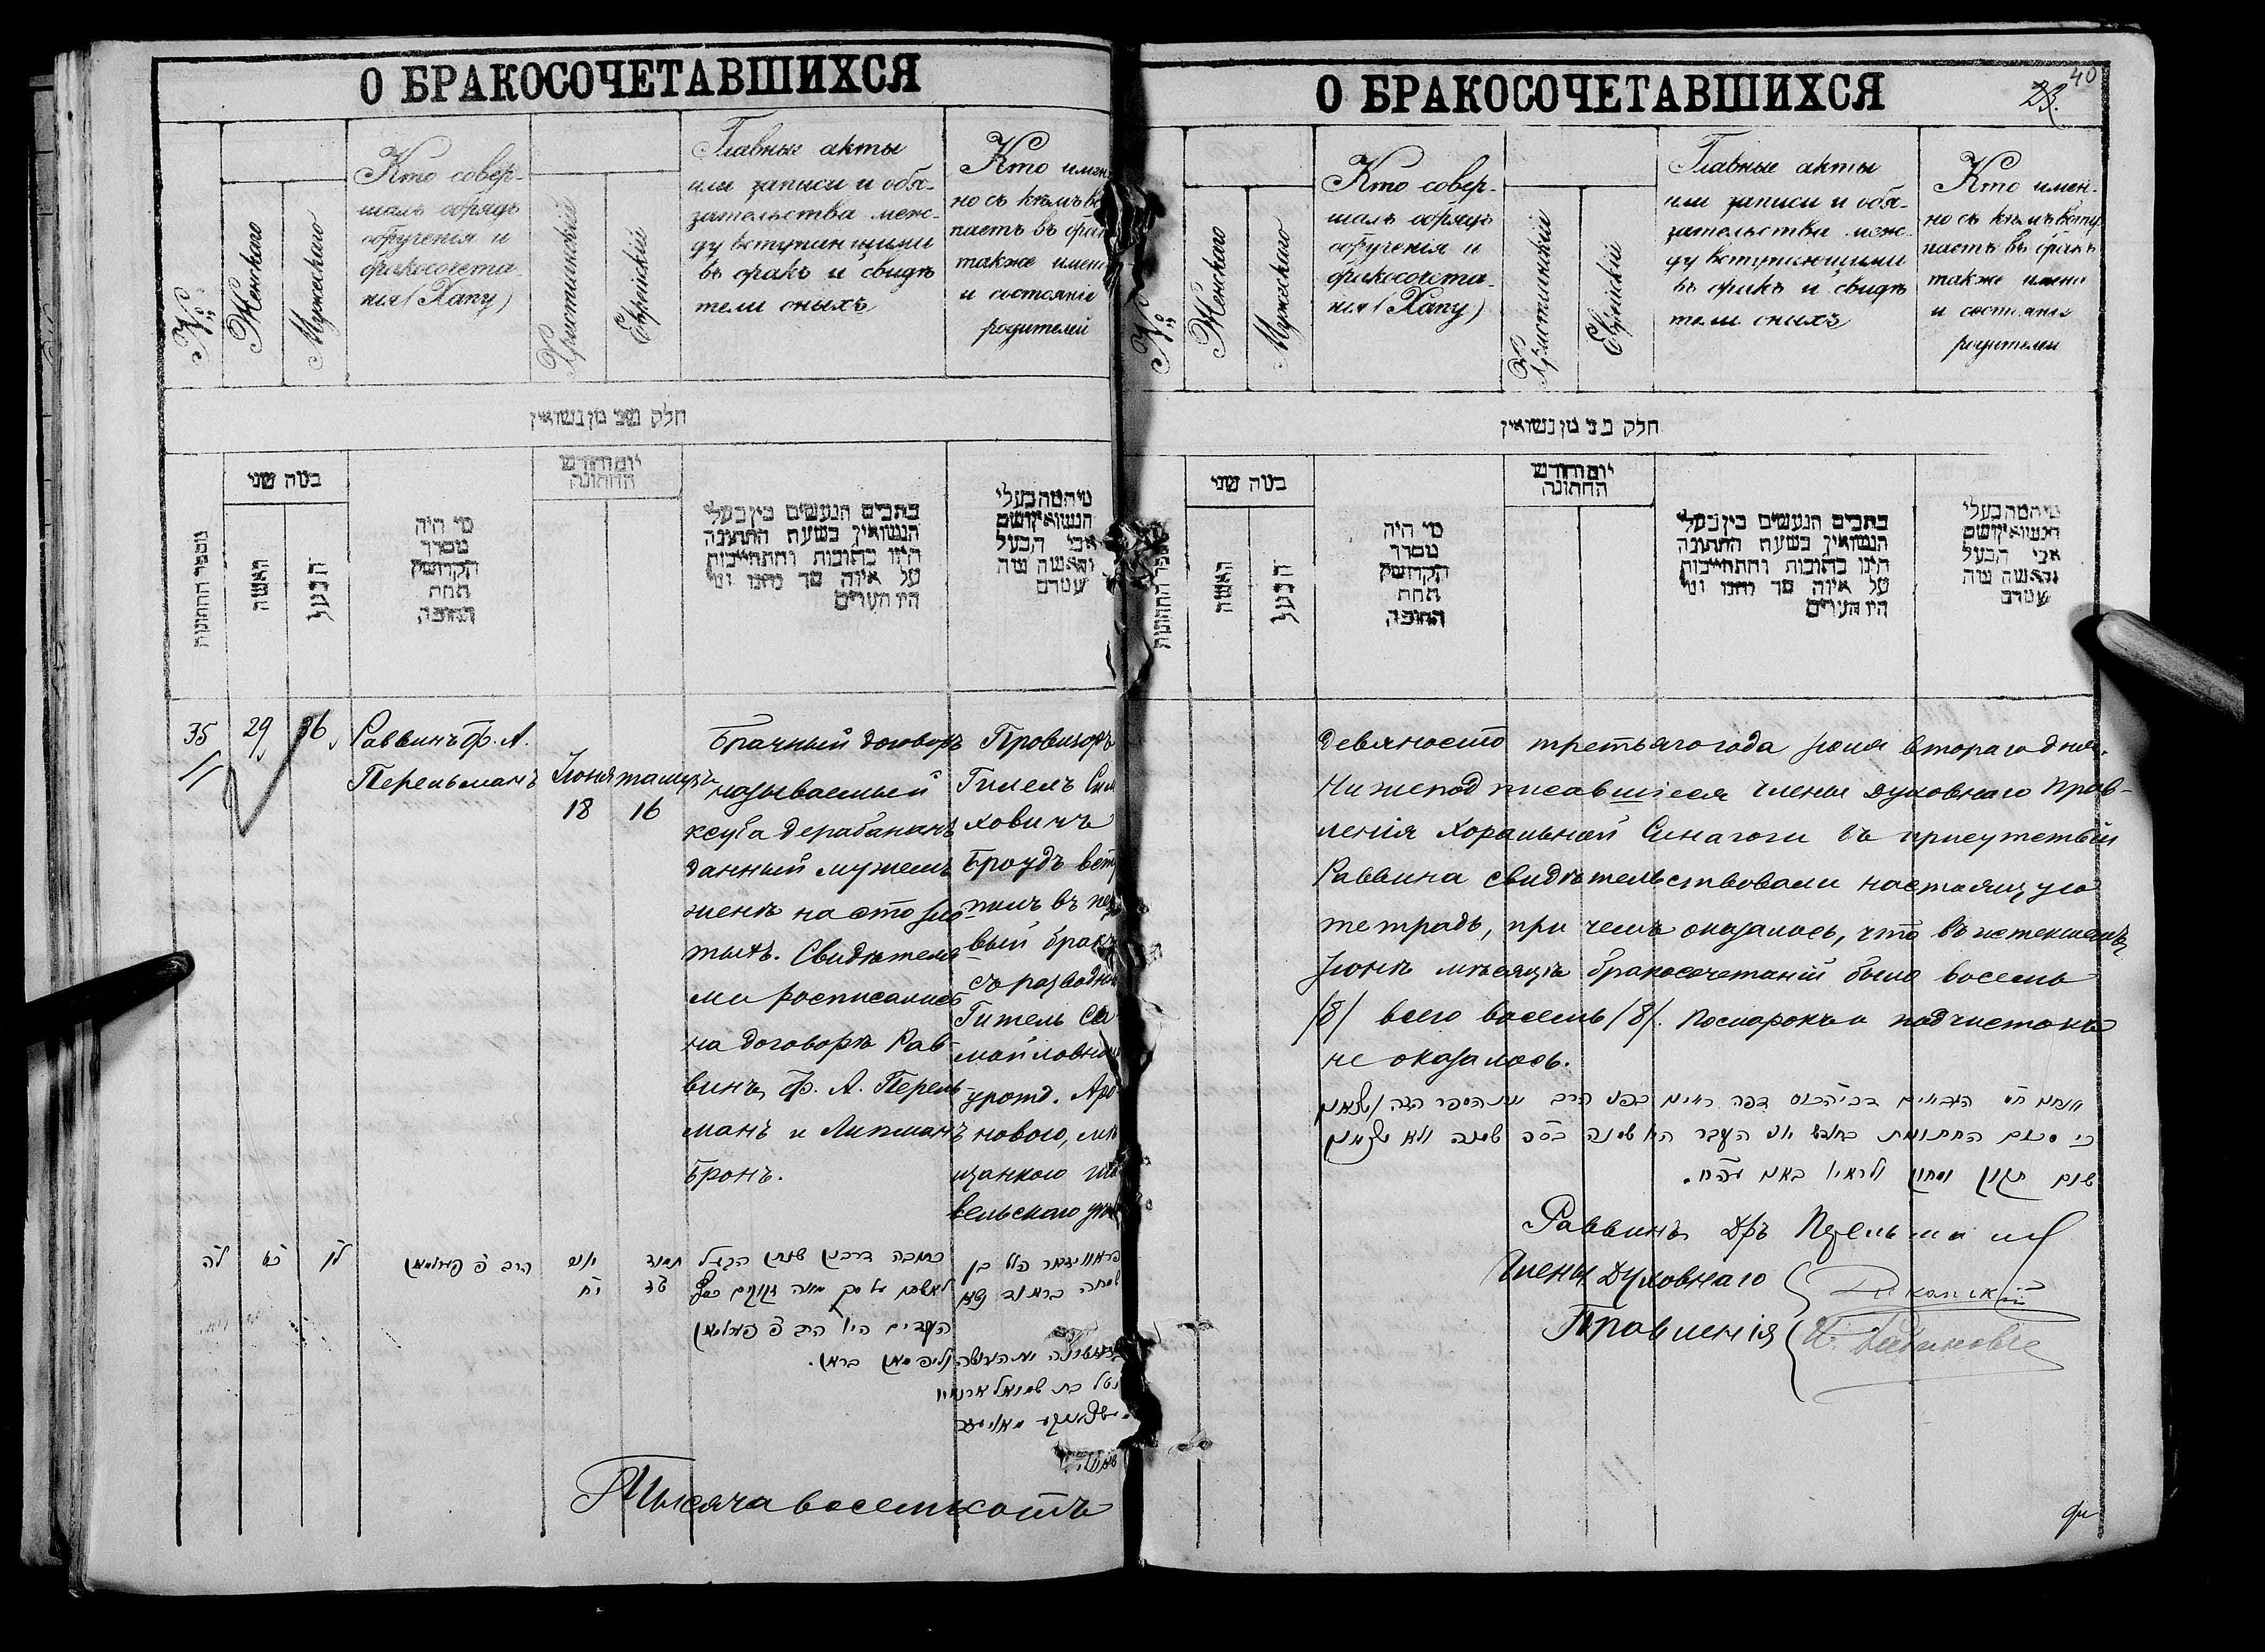 О БРАКОСОЧЕТАВШИХСЯ
№
Женскаго
Мужескаго
Кто совер-
шалъ обрядъ
обрученія и
бракосочета-
нія (Хапу)
Христіанскій
Еврейскій
Главные акты
или записи и обя-
зательства меж-
ду вступающими
въ бракъ и свидѣ
тели оныхъ
Кто имен
но съ кѣмъ вс
паетъ въ бра
также имен
и состояніе
родителей
חלק שני מן נשואין
מספר החתונות
כמה שני
האשה
הבעל
מי היה
מסדר
הקדושין
תחת
החופה
יום וחודש
החתונה
כתבים הנעשים בין בעלי
הנשואין בשעת החתונה
היינו כתובות והתחייבות
על איזה סך נתנו ומי
היו העדים
מי המה בעלי
הנשואין ושם
אבי הבעל
והאשה ומה
שמרם
35
29
36
Раввинъ Ф. А.
Перельманъ
Іюня
18
тамузъ
16
Брачный договоръ
называемый
ксуба дерабананъ
данный мужемъ
женѣ на сто зло
тыхъ. Свидѣтеля-
ми росписались
на договорѣ Рав-
винъ Ф. А. Перель-
манъ и Липманъ
Бронъ.
Провизоръ
Гилелъ Сим
ховичъ
Броудъ вст
пилъ въ пер
вый бракъ
съ разводною
Гитель Са
мойловною
урожд. Аро
новою, мѣ
щанкою Ша
вельскаго уѣз
לה
כט
לו
הרב פ פערלמאן
יוני
יח
תמוז
טז
כתובה דרבנן שנתן הבעל
לאשתו על סך מאה זקוקים כסף
העדים היו הרב פ פערלמאן
וליפמאן בראן.
פראוויזאר הלל בן
שמחה בראוד נשא
גיטל בת שמואל
Тысяча восемьсотъ
О БРАКОСОЧЕТАВШИХСЯ
40
23.
№
Женскаго
Мужескаго
Кто совер-
шалъ обрядъ
обрученія и
бракосочета-
нія (Хапу)
Христіанскій
Еврейскій
Главные акты
или записи и обя-
зательства меж-
ду вступающими
въ бракъ и свидѣ
тели оныхъ
Кто имен-
но съ кѣмъ всту
паетъ въ бракъ
также имена
и состояніе
родителей
חלק שני מן נשואין
כמה שני
האשה
הבעל
מי היה
מסדר
הקדושין
תחת
החופה
יום וחודש
החתונה
כתבים הנעשים בין בעלי
הנשואין בשעת החתונה
היינו כתובות והתחייבות
על איזה סך נתנו ומי
היו העדים
מי המה בעלי
הנשואין ושם
אבי הבעל
והאשה ומה
שמרם
девяносто третьяго года Іюля втораго дня.
Нижеподписавшіеся члены Духовнаго Прав-
ленія Хоральной Синагоги въ присутствіи
Раввина свидѣтельствовали настоящую
тетрадь, при чемъ оказалось, что въ истекшемъ
Іюнѣ мѣсяцѣ бракосочетаній было восемь
/8/ всего восемь /8/. Помарокъ и подчистокъ
не оказалось.
כי סכום החתונות בחודש יוני העבר היו שמנה בס״ה שמנה ולא מצאנו
שום תקון ומחק ולראיה באנו עה״ח.
Раввинъ Дръ Перельманъ
Члены Духовнаго
Правленія